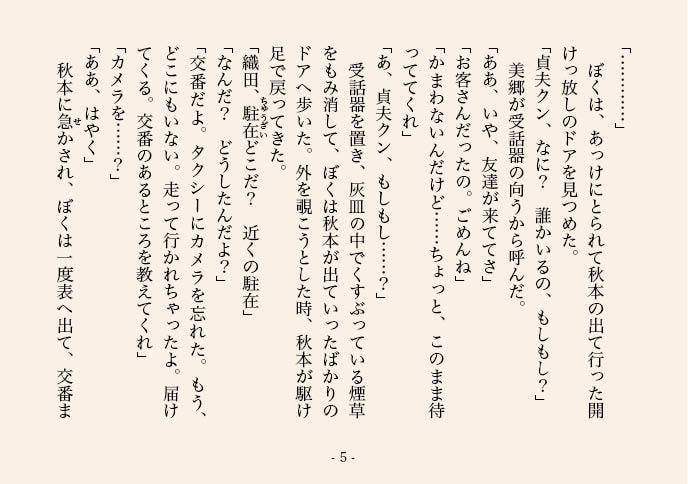 「…………」
　ぼくは、あっけにとられて秋本の出て行った開
けっ放しのドアを見つめた。
「貞夫クン、なに？　誰かいるの、もしもし？」
　美郷が受話器の向うから呼んだ。
「ああ、いや、友達が来ててさ」
「お客さんだったの。ごめんね」
「かまわないんだけど……ちょっと、このまま待
っててくれ」
「あ、貞夫クン、もしもし……？」
　受話器を置き、灰皿の中でくすぶっている煙草
をもみ消して、ぼくは秋本が出ていったばかりの
ドアへ歩いた。外を覗こうとした時、秋本が駆け
足で戻ってきた。
「織田、駐在どこだ？　近くの駐在」
ちゅうざい
「なんだ？　どうしたんだよ？」
「交番だよ。タクシーにカメラを忘れた。もう、
どこにもいない。走って行かれちゃったよ。届け
てくる。交番のあるところを教えてくれ」
「カメラを……？」
「ああ、はやく」
　秋本に急かされ、ぼくは一度表へ出て、交番ま
せ
- 5 -